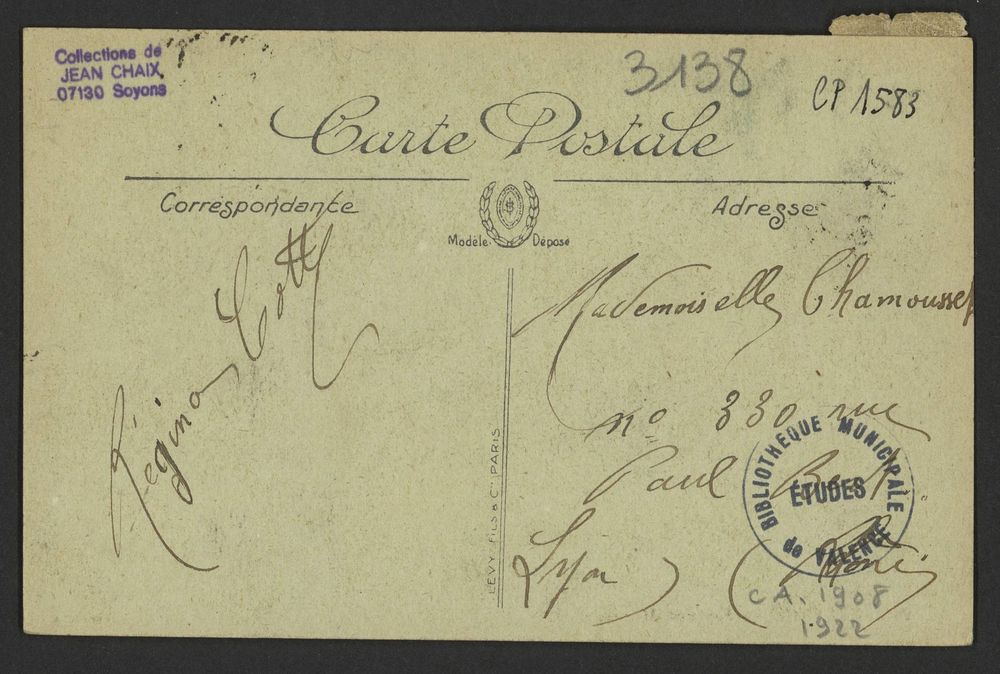 Collections de
JEAN CHAIX
07130 Soyons
3138
CP 1583
Carte Postale
Correspondance
Adresse
Modèle Déposé
Régina Cott
LEVY FILS & Cie PARIS
Mademoiselle Chamousset
no 330 rue
Paul Bert
Lyon (Rhône)
BIBLIOTHEQUE MUNICIPALE
ÉTUDES
de VALENCE
CA. 1908
1922